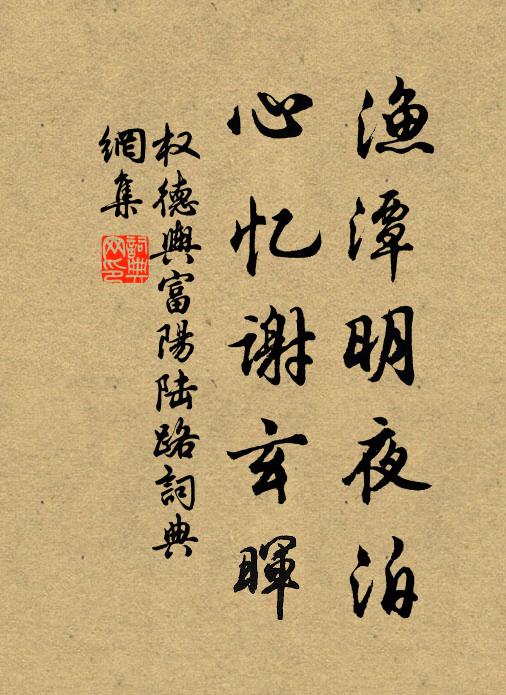 渔潭明夜泊
心忆谢玄暉
权德輿富陽陆路詞典
網集
詞典网印